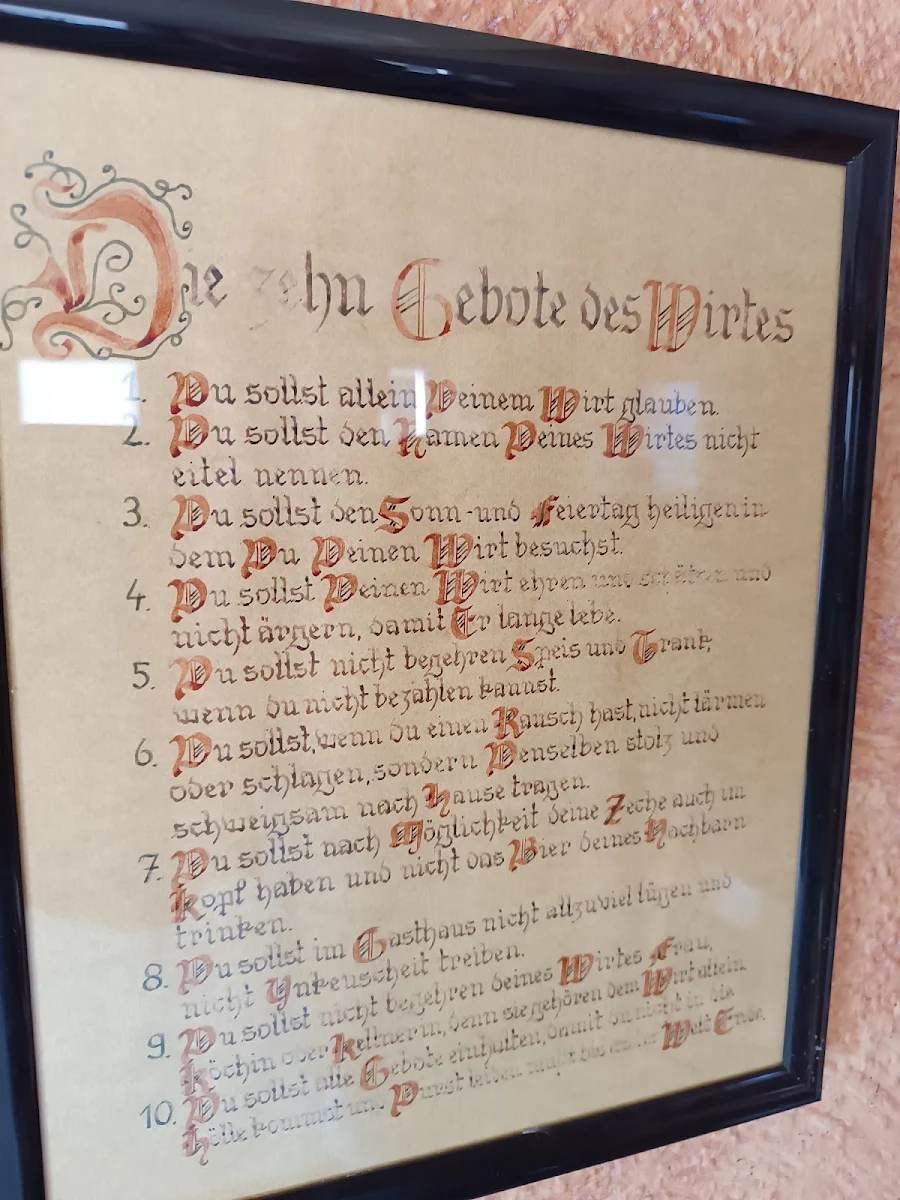 Die zehn Gebote des Wirtes
1. Du sollst allein Deinem Wirt glauben.
2. Du sollst den Namen Deines Wirtes nicht
eitel nennen.
3. Du sollst den Sonn-und Feiertag heiligen in
dem Du Deinen Wirt besuchst.
4. Du sollst Deinen Wirt ehren und schätzen und
nicht ärgern, damit Er lange lebe.
5. Du sollst nicht begehren Speis und Trank,
wenn du nicht bezahlen kannst.
6. Du sollst, wenn du einen Rausch hast, nicht lärmen
oder schlagen, sondern Denselben stolz und
schweigsam nach Hause tragen.
7. Du sollst nach Möglichkeit deine Zeche auch im
Kopf haben und nicht das Bier deines Nachbarn
trinken.
8. Du sollst im Gasthaus nicht allzuviel lügen und
nicht Unkeuscheit treiben.
9. Du sollst nicht begehren deines Wirtes Frau,
Köchin oder Kellnerin, denn sie gehören dem Wirt allein.
10. Du sollst alle Gebote einhalten, damit du nicht in die
Hölle kommst und Durst leiden mußt bis an der Welt Ende.